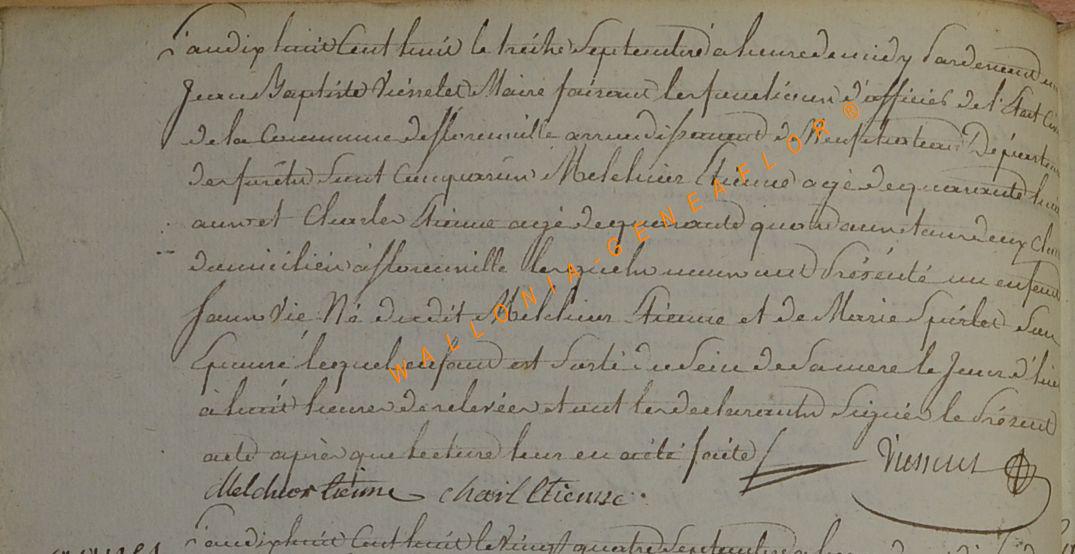 L'an dix huit Cent huit le treize Septembre a heure de midy Pardevant
Jean Baptiste Visselet Maire faisant les fonctions d'officier de l'Etat Civ
de la Commune de florenville arrondissement de Neufchateau Départem
des forêts Sont Comparus Melchior Etienne agé de quarante huit
ans et Charles Etienne agé de quarante quatre ans tous deux
domiciliés a florenville lesquels nous ont Présenté un enfant
Sans Vie Né dudit Melchior Etienne et de Marie Spirlet Son
Epouse lequel enfant est Sorti du Sein de Sa mere le Jour d'hie
à huit heures de relevée et ont les declarants Signés le Présent
acte après que lecture leur en a été faite
Melchior Etienne Charl Etienne
L'an dix huit Cent huit le Vingt quatre Septembre a
WALLONIA-GENEAFLOR®